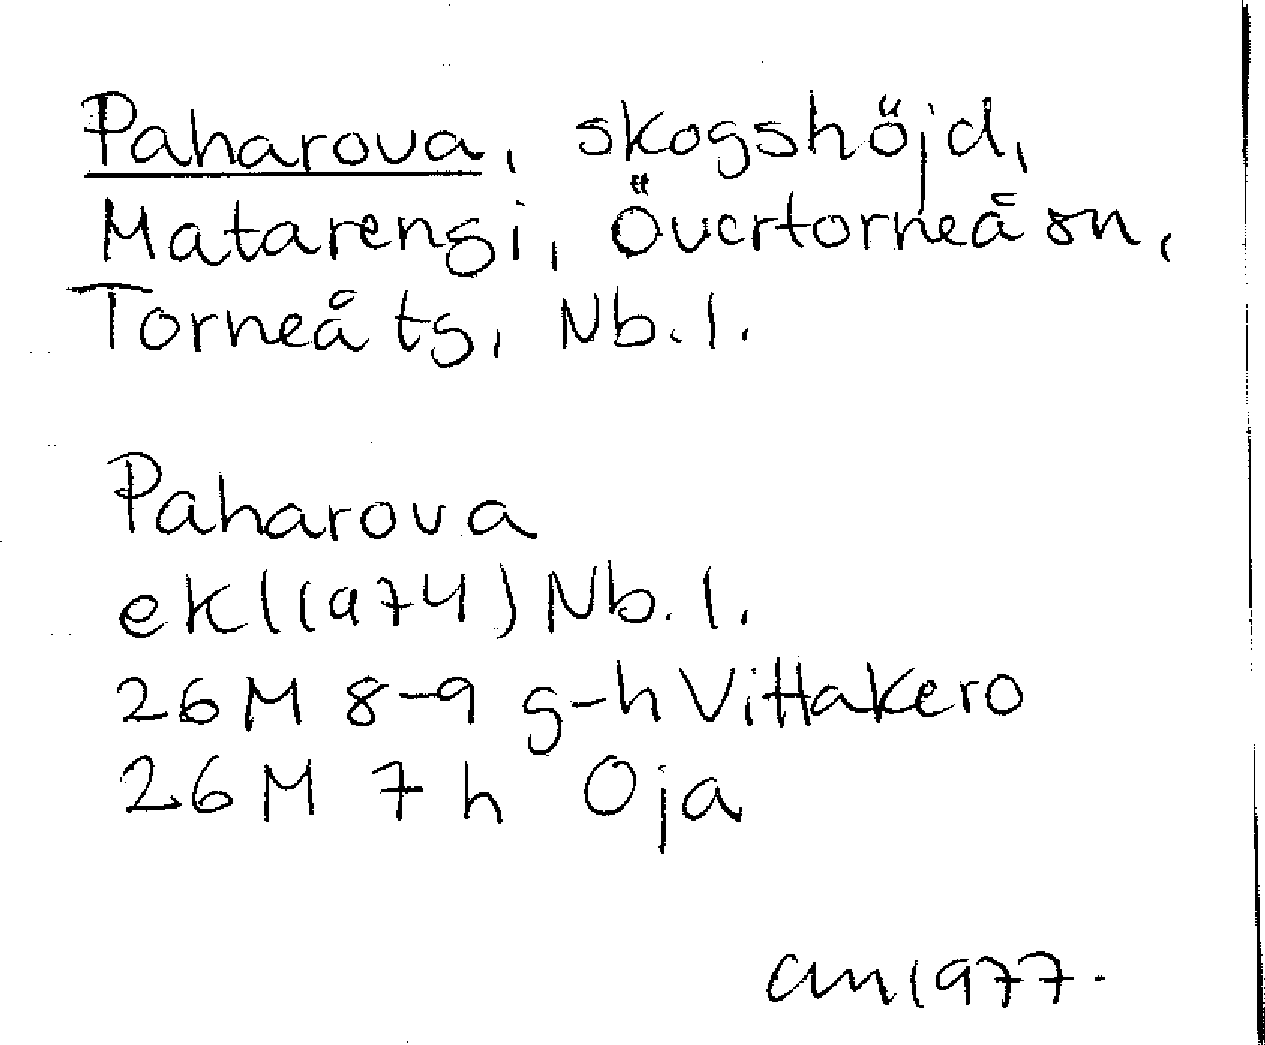 Paharova, skogshöjd,
Matarengi, Övertorneå sn,
Torneå ts, Nb. l.
Paharova
ekl(1974) Nb. l.
26 M 8-9 g-h Vittakero
26 M 7 h Oja
am 1977.